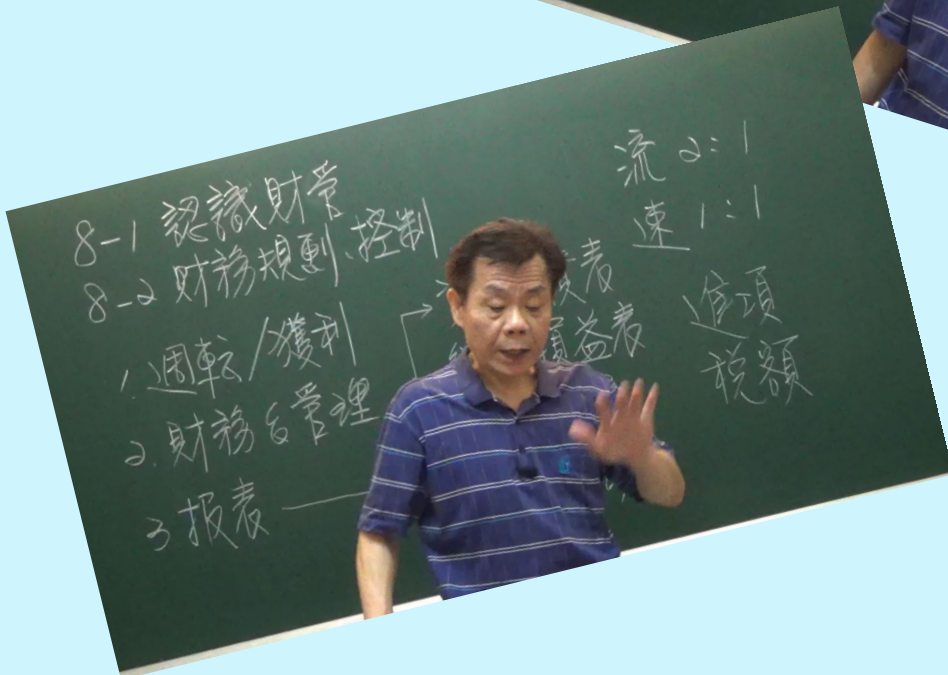 8-1 認識財管
8-2 財務規劃、控制
1. 週転/獲利
2. 財務&管理
3 报表
表
損益表
流 2:1
速 1:1
進項
稅額